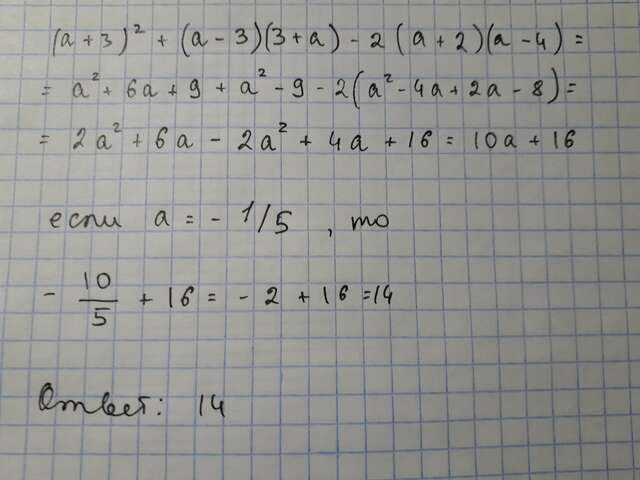 (a+3)² + (a-3)(3+a) - 2(a+2)(a-4) =
= a² + 6a + 9 + a² - 9 - 2(a² - 4a + 2a - 8) =
= 2a² + 6a - 2a² + 4a + 16 = 10a + 16
если a = - 1/5 , то
- 10/5 + 16 = - 2 + 16 = 14
Ответ: 14